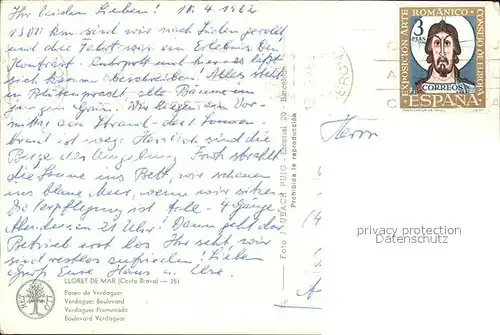 Ihr beiden Lieben! 18.4.1962
1500 km sind wir nach Süden gerollt
und die Fahrt war ein Erlebnis. Der
Kontrast Ruhrpott und hier es läßt
sich kaum beschreiben! Alles steht
in Blütenpracht alle Bäume im
jungen Grün. Wir liegen am Vor-
mittag am Strand, der Sonnen-
brand ist weg. Herrlich sind die
Berge der Umgebung. Früh strahlt
die Sonne ins Bett, wir schauen
ins blaue Meer, wenn wir
Die Verpflegung ist 4 Gänge
Abendessen 21 Uhr! Dann geht der
Betrieb erst los. Ihr seht, wir
sind restlos zufrieden! Lieben
Gruß Eure Hans u. Ilse.
LLORET DE MAR (Costa Brava) — 251
Paseo de Verdaguer
Verdaguer Boulevard
Verdaguer Promenade
Boulevard Verdaguer
Foto J. UBACH PUIG - Escorial, 20 - Barcelona
Prohibida la reproducción
EXPOSICIÓN ARTE ROMÁNICO - CONSEJO DE EUROPA
3
PTAS
CORREOS
ESPAÑA
Herrn
privacy protection
DATENSCHUTZ